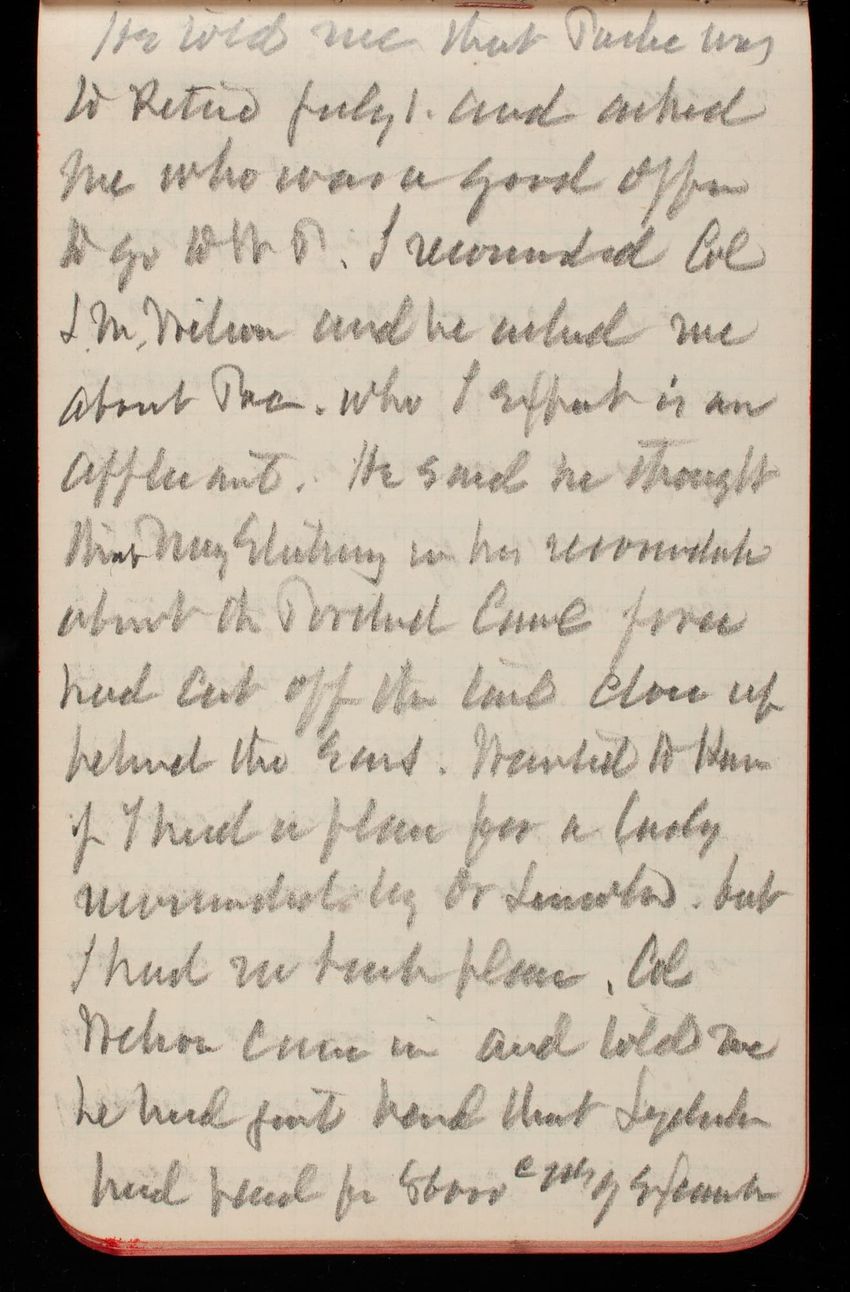 He told me that Parke was
to Retire July 1. and asked
me who was a good officer
to go to W P. I recommended Col
J.M. Wilson and he asked me
about Poe. who I expect is an
applicant. He said he thought
that in his recommendation
about the Portland Canal
had cut off the tail close up
behind the Ears. Wanted to know
if I had a place for a lady
recommended by Dr but
I had no such place. Col
Nelson came in and told me
he had just heard that
had paid for of